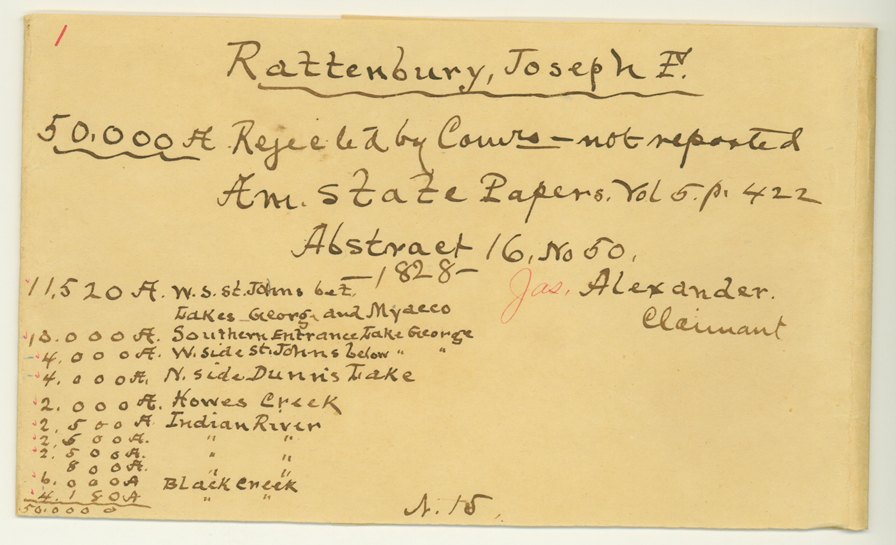 Rattenbury, Joseph F.
50,000 A Rejected by Coms - not reported
Am. State Papers. Vol 5. p. 422
Abstract 16, No 50.
-1828-
11,520 A. W.S. St. Johns bet.
Lakes Georg and Myacco
Jas. Alexander.
Claimant
10.000 A. Southern Entrance Lake George
4.000 A. W. side St. Johns below " "
4.000 A. N. side Dunn's Lake
2.000 A. Howes Creek
2,500 A Indian River
2,500 A. " "
2,500 A. " "
800 A. " "
6.000 A Black Creek
4.180 A " "
50.000 0
N. 15